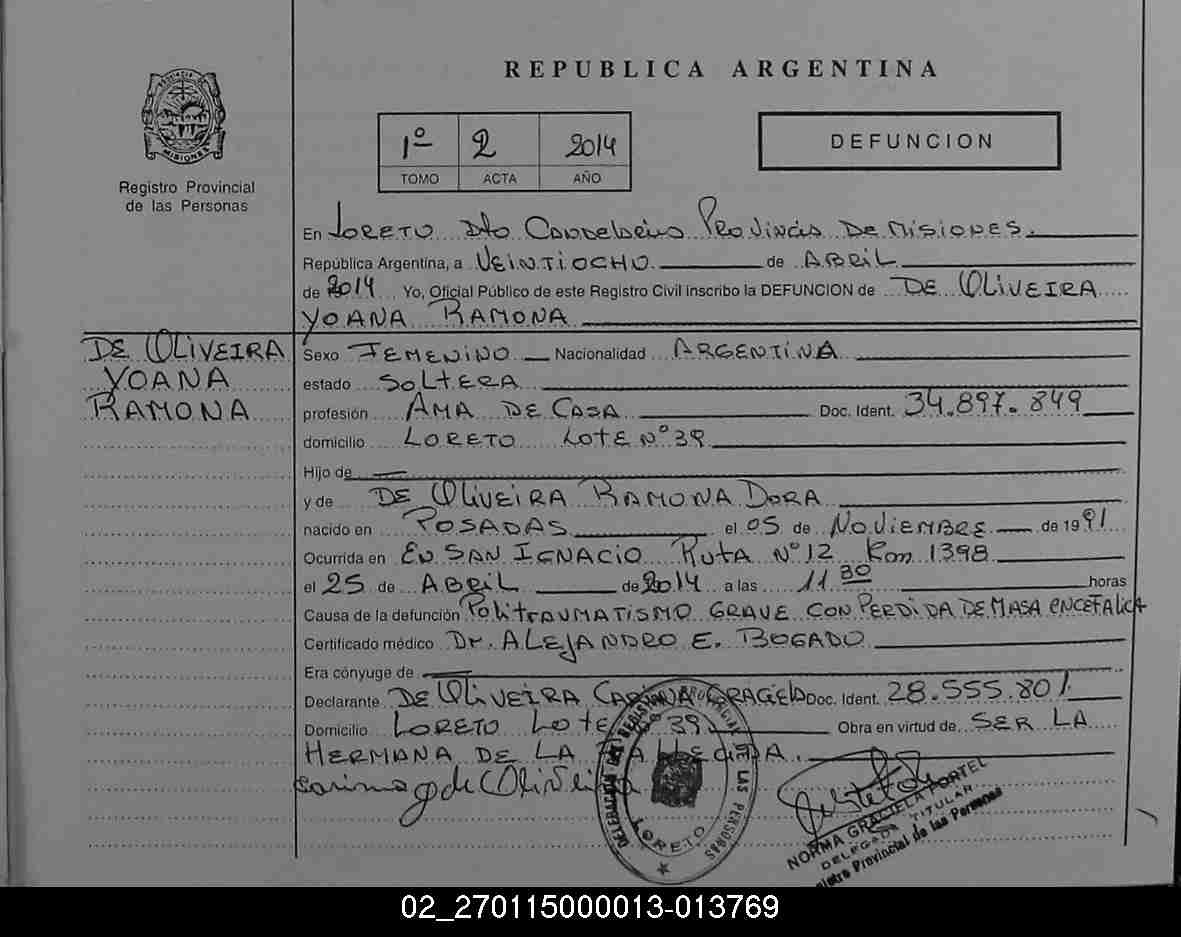 REPUBLICA ARGENTINA
PROVINCIA DE
MISIONES
Registro Provincial
de las Personas
1º 2 2014
TOMO ACTA AÑO
DEFUNCION
En LORETO Dto Candelaria Provincia De Misiones.
República Argentina, a VEINTIOCHO de ABRIL
de 2014 Yo, Oficial Público de este Registro Civil inscribo la DEFUNCION de DE OLIVEIRA
YOANA RAMONA
DE OLIVEIRA
YOANA
RAMONA
Sexo FEMENINO Nacionalidad ARGENTINA
estado SOLTERA
profesión AMA DE CASA Doc. Ident. 34.897.849
domicilio LORETO LOTE Nº 39
Hijo de —
y de DE OLIVEIRA RAMONA DORA
nacido en POSADAS el 05 de NOVIEMBRE de 1991
Ocurrida en EN SAN IGNACIO RUTA Nº 12 Km 1398
el 25 de ABRIL de 2014 a las 11 30 horas
Causa de la defunción POLITRAUMATISMO GRAVE CON PERDIDA DE MASA ENCEFALICA
Certificado médico Dr. ALEJANDRO E. BOGADO
Era cónyuge de —
Declarante DE OLIVEIRA CARINA GRACIELA Doc. Ident. 28.555.801
Domicilio LORETO LOTE 39 Obra en virtud de SER LA
HERMANA DE LA FALLECIDA.
Carina g de Oliveira
DELEGACION DEL REGISTRO PROVINCIAL DE LAS PERSONAS
LORETO
NORMA GRACIELA PORTEL
DELEGADA TITULAR
Registro Provincial de las Personas
02_270115000013-013769